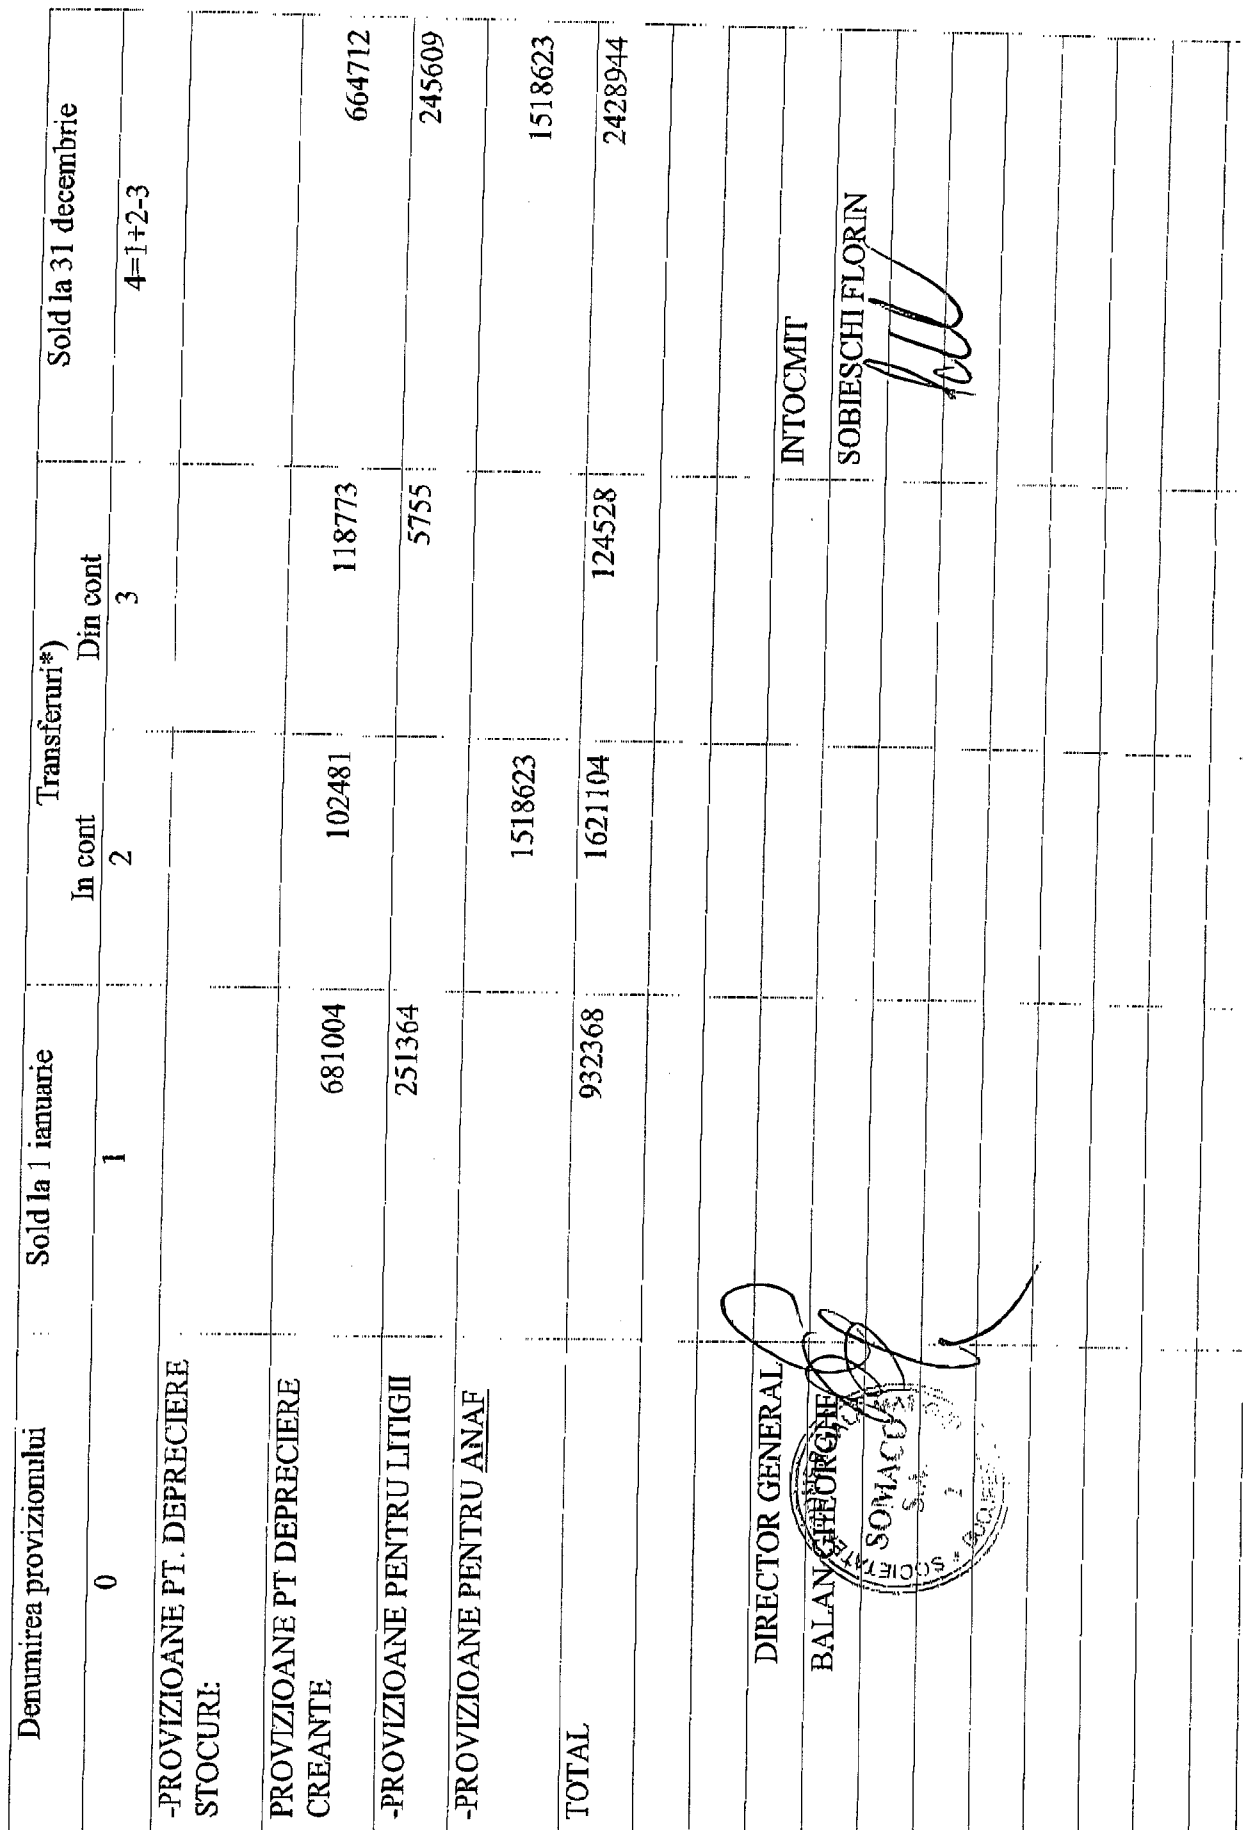 Denumirea provizionului Sold la 1 ianuarie Transferuri*) Sold la 31 decembrie
In cont Din cont
0 1 2 3 4=1+2-3
-PROVIZIOANE PT. DEPRECIERE
STOCURI:
PROVIZIOANE PT DEPRECIERE
CREANTE 681004 102481 118773 664712
-PROVIZIOANE PENTRU LITIGII 251364 5755 245609
-PROVIZIOANE PENTRU ANAF
1518623 1518623
TOTAL 932368 1621104 124528 2428944
DIRECTOR GENERAL INTOCMIT
BALAN GHEORGHE SOBIESCHI FLORIN
SOMACO
S.A.
2